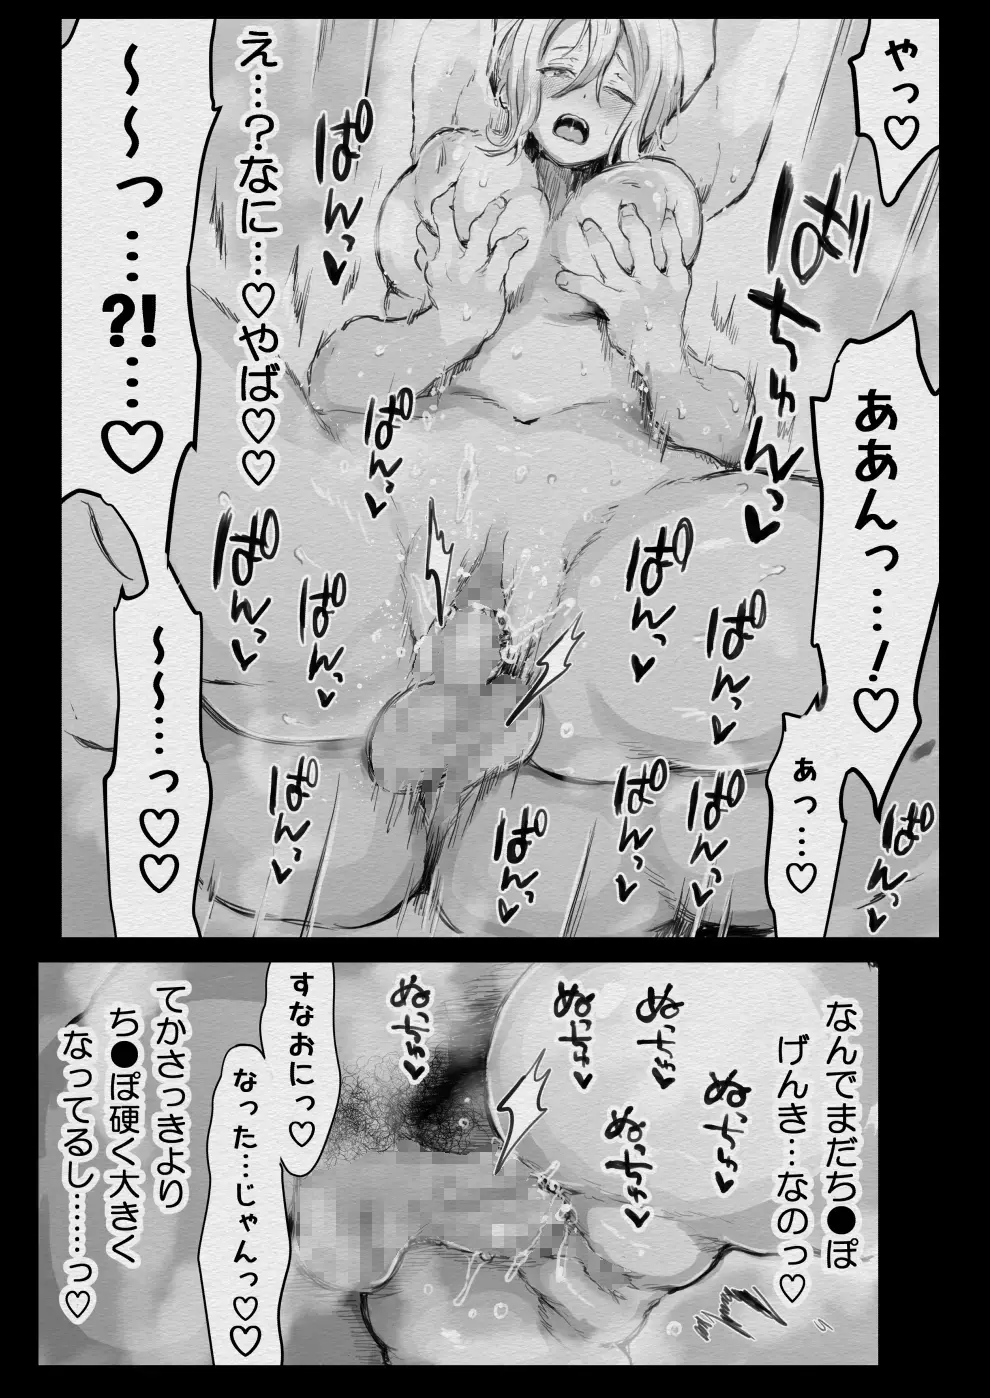 やっ♡
ばちゅんっ♥
ああんっ…!♡
あっ…♡
ぱんっ♥
え…?なに…♡やば♡♡
〜〜っ…?!…♡
〜〜…っ♡♡
ぱんっ♥
ぱんっ♥
ぱんっ♥
ぱんっ♥
ぱんっ♥
ぱんっ♥
ぱんっ♥
ぱんっ♥
ぱんっ♥
ぱんっ♥
ぱんっ♥
なんでまだち●ぽ
げんき…なのっ♡
ぬチュっ♥
ぬチュっ♥
ぬチュっ♥
ぬチュっ♥
ぬチュっ♥
すなおにっ♡
なった…じゃんっ♡♡
てかさっきより
ち●ぽ硬く大きく
なってるし……っ♡